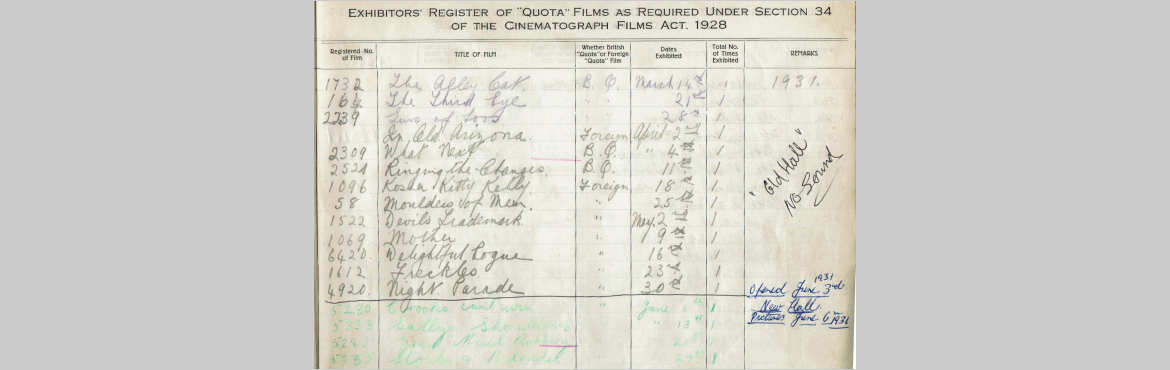 EXHIBITORS' REGISTER OF "QUOTA" FILMS AS REQUIRED UNDER SECTION 34
OF THE CINEMATOGRAPH FILMS ACT. 1928
Registered No. of Film TITLE OF FILM Whether British "Quota" or Foreign "Quota" Film Dates Exhibited Total No. of Times Exhibited REMARKS
1732 The Alley Cat. B. Q. March 14th 1 1931.
164 The Third Eye " " 21 1
2239 " " 28 1
In Old Arizona. Foreign April 2 1
2309 What Next B. Q. " 4 1
2524 Ringing the Changes. B. Q. 11 1
1096 Kosher Kitty Kelly Foreign 18 1
58 Moulders of Men. " 25 1
1522 Devils Trademark " May 2 1
1069 Mother " 9 1
6420 Delightful Rogue " 16 1
1612 Freckles " 23 1
4920. Night Parade " 30 1
"Old Hall"
No Sound
1931
Opened June 3rd
New Hall.
Pictures June 6 1931
5230 " June 1
" 13th 1
1
1